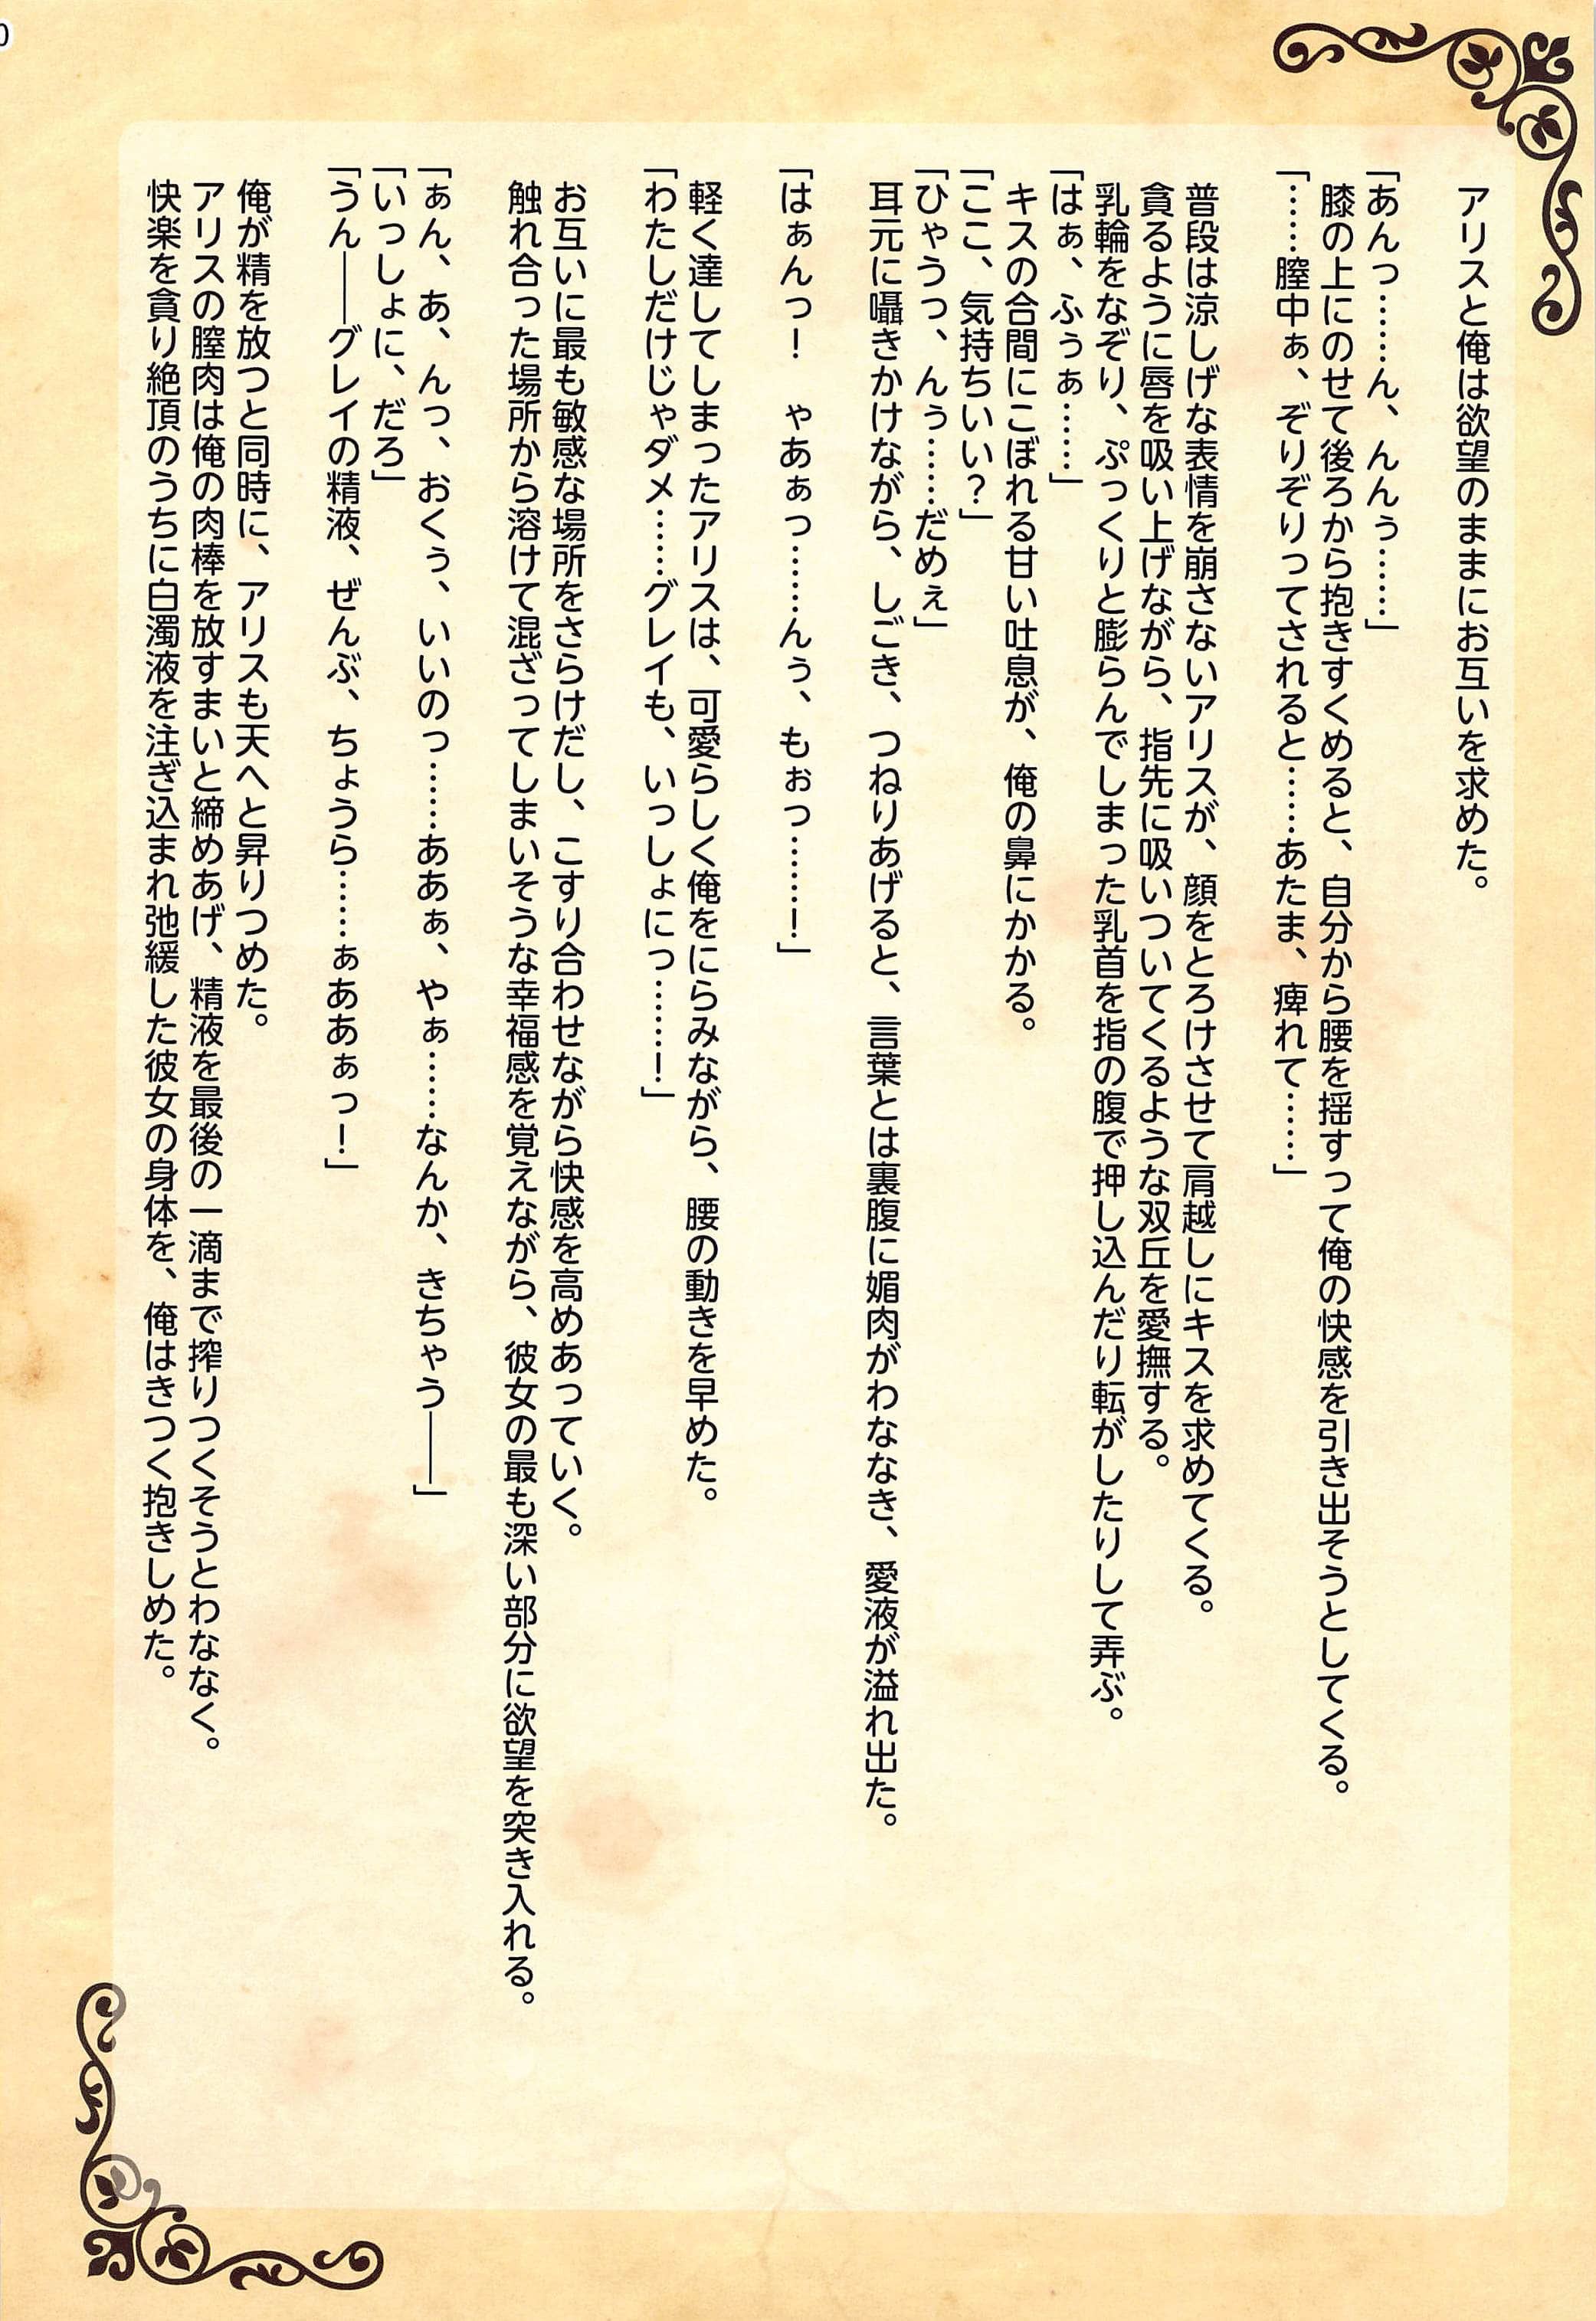 アリスと俺は欲望のままにお互いを求めた。
「あんっ……ん、んんぅ……」
膝の上にのせて後ろから抱きすくめると、自分から腰を揺すって俺の快感を引き出そうとしてくる。
「……膣中ぁ、ぞりぞりってされると……あたま、痺れて……」
普段は涼しげな表情を崩さないアリスが、顔をとろけさせて肩越しにキスを求めてくる。
貪るように唇を吸い上げながら、指先に吸いついてくるような双丘を愛撫する。
乳輪をなぞり、ぷっくりと膨らんでしまった乳首を指の腹で押し込んだり転がしたりして弄ぶ。
「はぁ、ふぅぁ……」
キスの合間にこぼれる甘い吐息が、俺の鼻にかかる。
「ここ、気持ちいい?」
「ひゃうっ、んぅ……だめぇ」
耳元に囁きかけながら、しごき、つねりあげると、言葉とは裏腹に媚肉がわななき、愛液が溢れ出た。
「はぁんっ! ゃあぁっ………んぅ、もぉっ………!」
軽く達してしまったアリスは、可愛らしく俺をにらみながら、腰の動きを早めた。
「わたしだけじゃダメ……グレイも、いっしょにっ……!」
お互いに最も敏感な場所をさらけだし、こすり合わせながら快感を高めあっていく。
触れ合った場所から溶けて混ざってしまいそうな幸福感を覚えながら、彼女の最も深い部分に欲望を突き入れる。
「ぁん、あ、んっ、おくぅ、いいのっ……ああぁ、やぁ……なんか、きちゃう――」
「いっしょに、だろ」
「うん――グレイの精液、ぜんぶ、ちょうら……ぁああぁっ!」
俺が精を放つと同時に、アリスも天へと昇りつめた。
アリスの膣肉は俺の肉棒を放すまいと締めあげ、精液を最後の一滴まで搾りつくそうとわななく。
快楽を貪り絶頂のうちに白濁液を注ぎ込まれ弛緩した彼女の身体を、俺はきつく抱きしめた。